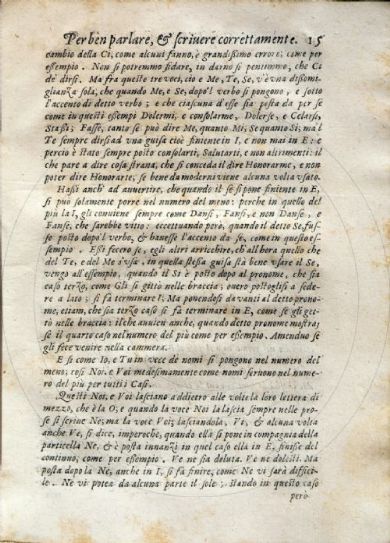 Per ben parlare, & scrivere correttamente. 15
cambio della Ci, come alcuni fanno, è grandissimo errore; come per
essempio. Non si potremmo fidare, in darno si pentimmo, che Ci
de' dirsi. Ma fra queste tre voci, cio è Me, Te, Se, v'è una dissomi
glianza sola, che quando Me, e Se, dopo'l verbo si pongono, e sotto
l'accento di detto verbo; e che ciascuna d'esse sia posta da per se
come in questi essempi Dolermi, e consolarme, Dolerse, e Celarsi,
Stassi; Fasse, tanto se può dire Me, quanto Mi, Se quanto Si; ma'l
Te sempre dirsi ad una guisa cioè finiente in I, e non mai in E: e
perciò è stato sempre posto consolarti, Salutarti, e non altrimenti: il
che pare a dire cosa strana, che si conceda il dire Honorarme, e non
poter dire Honorarte, se bene da moderni viene alcuna volta usato.
Hassi anch' ad avvertire, che quando il se si pone finiente in E,
si può solamente porre nel numero del meno: perche in quello del
più la I, gli conviene sempre come Dansi, Fansi, e non Danse, e
Fanse, che sarebbe vitio: eccettuando però, quando il detto Se, fus-
se posto dopo'l verbo, & havesse l'accento da se, come in questo es-
sempio. Essi fecero se, e gli altri arricchire, ch'all'hora quello che
del Te, e del Me s'usa, in quella stessa guisa stà bene usare il Se,
vengo all'essempio, quando il Si è posto dopo al pronome, che sia
caso terzo, come Gli si gittò nelle braccia; overo postoglisi a sede-
re a lato; si fà terminare I. Ma ponendosi davanti al detto prono-
me, etiam, che sia terzo caso si fà terminare in E, come se gli get-
tò nelle braccia: il che avvien anche, quando detto pronome mostra;
se il quarto caso nel numero del più come per essempio. Amenduo se
gli fece venire nella cammera.
E si come Io, e Tu in vece de nomi si pongono nel numero del
meno; così Noi, e Voi medesimamente come nomi servono nel nume-
ro del più per tutti i Casi.
Questi Noi, e Voi lasciano addietro alle volte la loro lettera di
mezzo, che è la O; e quando la voce Noi la lascia sempre nelle pro-
se si scrive Ne; ma la voce Voi; lasciandola, Vi, & alcuna volta
anche Ve, si dice, imperoche, quando ella si pone in compagnia della
particella Ne, & è posta innanzi in quel caso ella in E, finisse del
continuo, come per essempio. Ve ne sia doluta. Ve ne dolesti. Ma
posta dopo la Ne, anche in I, si fà finire, come Ne vi sarà diffici-
le. Ne vi potea da alcuna parte il sole; stando in questo caso
però